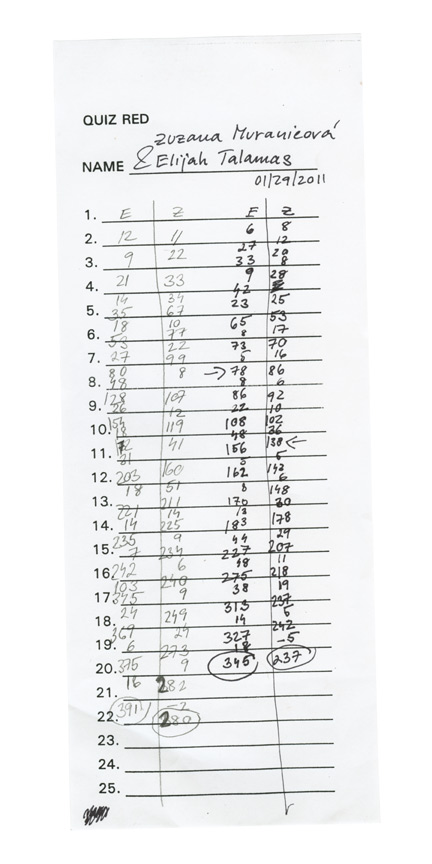 QUIZ RED
Zuzana Muranicová
NAME & Elijah Talamas
01/29/2011
1. E Z E Z
6 8
2. 12 11 27 12
9 22 33 20
3. 9 8
21 33 9 28
4. 42
14 34 23 25
5. 35 67
18 10 65 53
6. 53 77 8 17
22 73 70
7. 27 99 5 16
80 8 → 78 86
8. 48 8 6
128 107 86 92
9. 26 12 22 10
154 119 108 102
10. 18 48 36
41 156 138 ←
11. 31 5 5
203 160 162 143
12. 18 51 8 6
211 148
13. 221 14 170 30
14 225 13 178
14. 183
235 9 44 29
15. 7 234 227 207
242 6 48 11
16. 103 240 275 218
345 9 38 19
17. 313 237
24 249 14 5
18. 369 24 327 242
19. 6 273 18 -5
375 9 345 237
20.
16 282
21.
391 -2
22. 280
23.
24.
25.